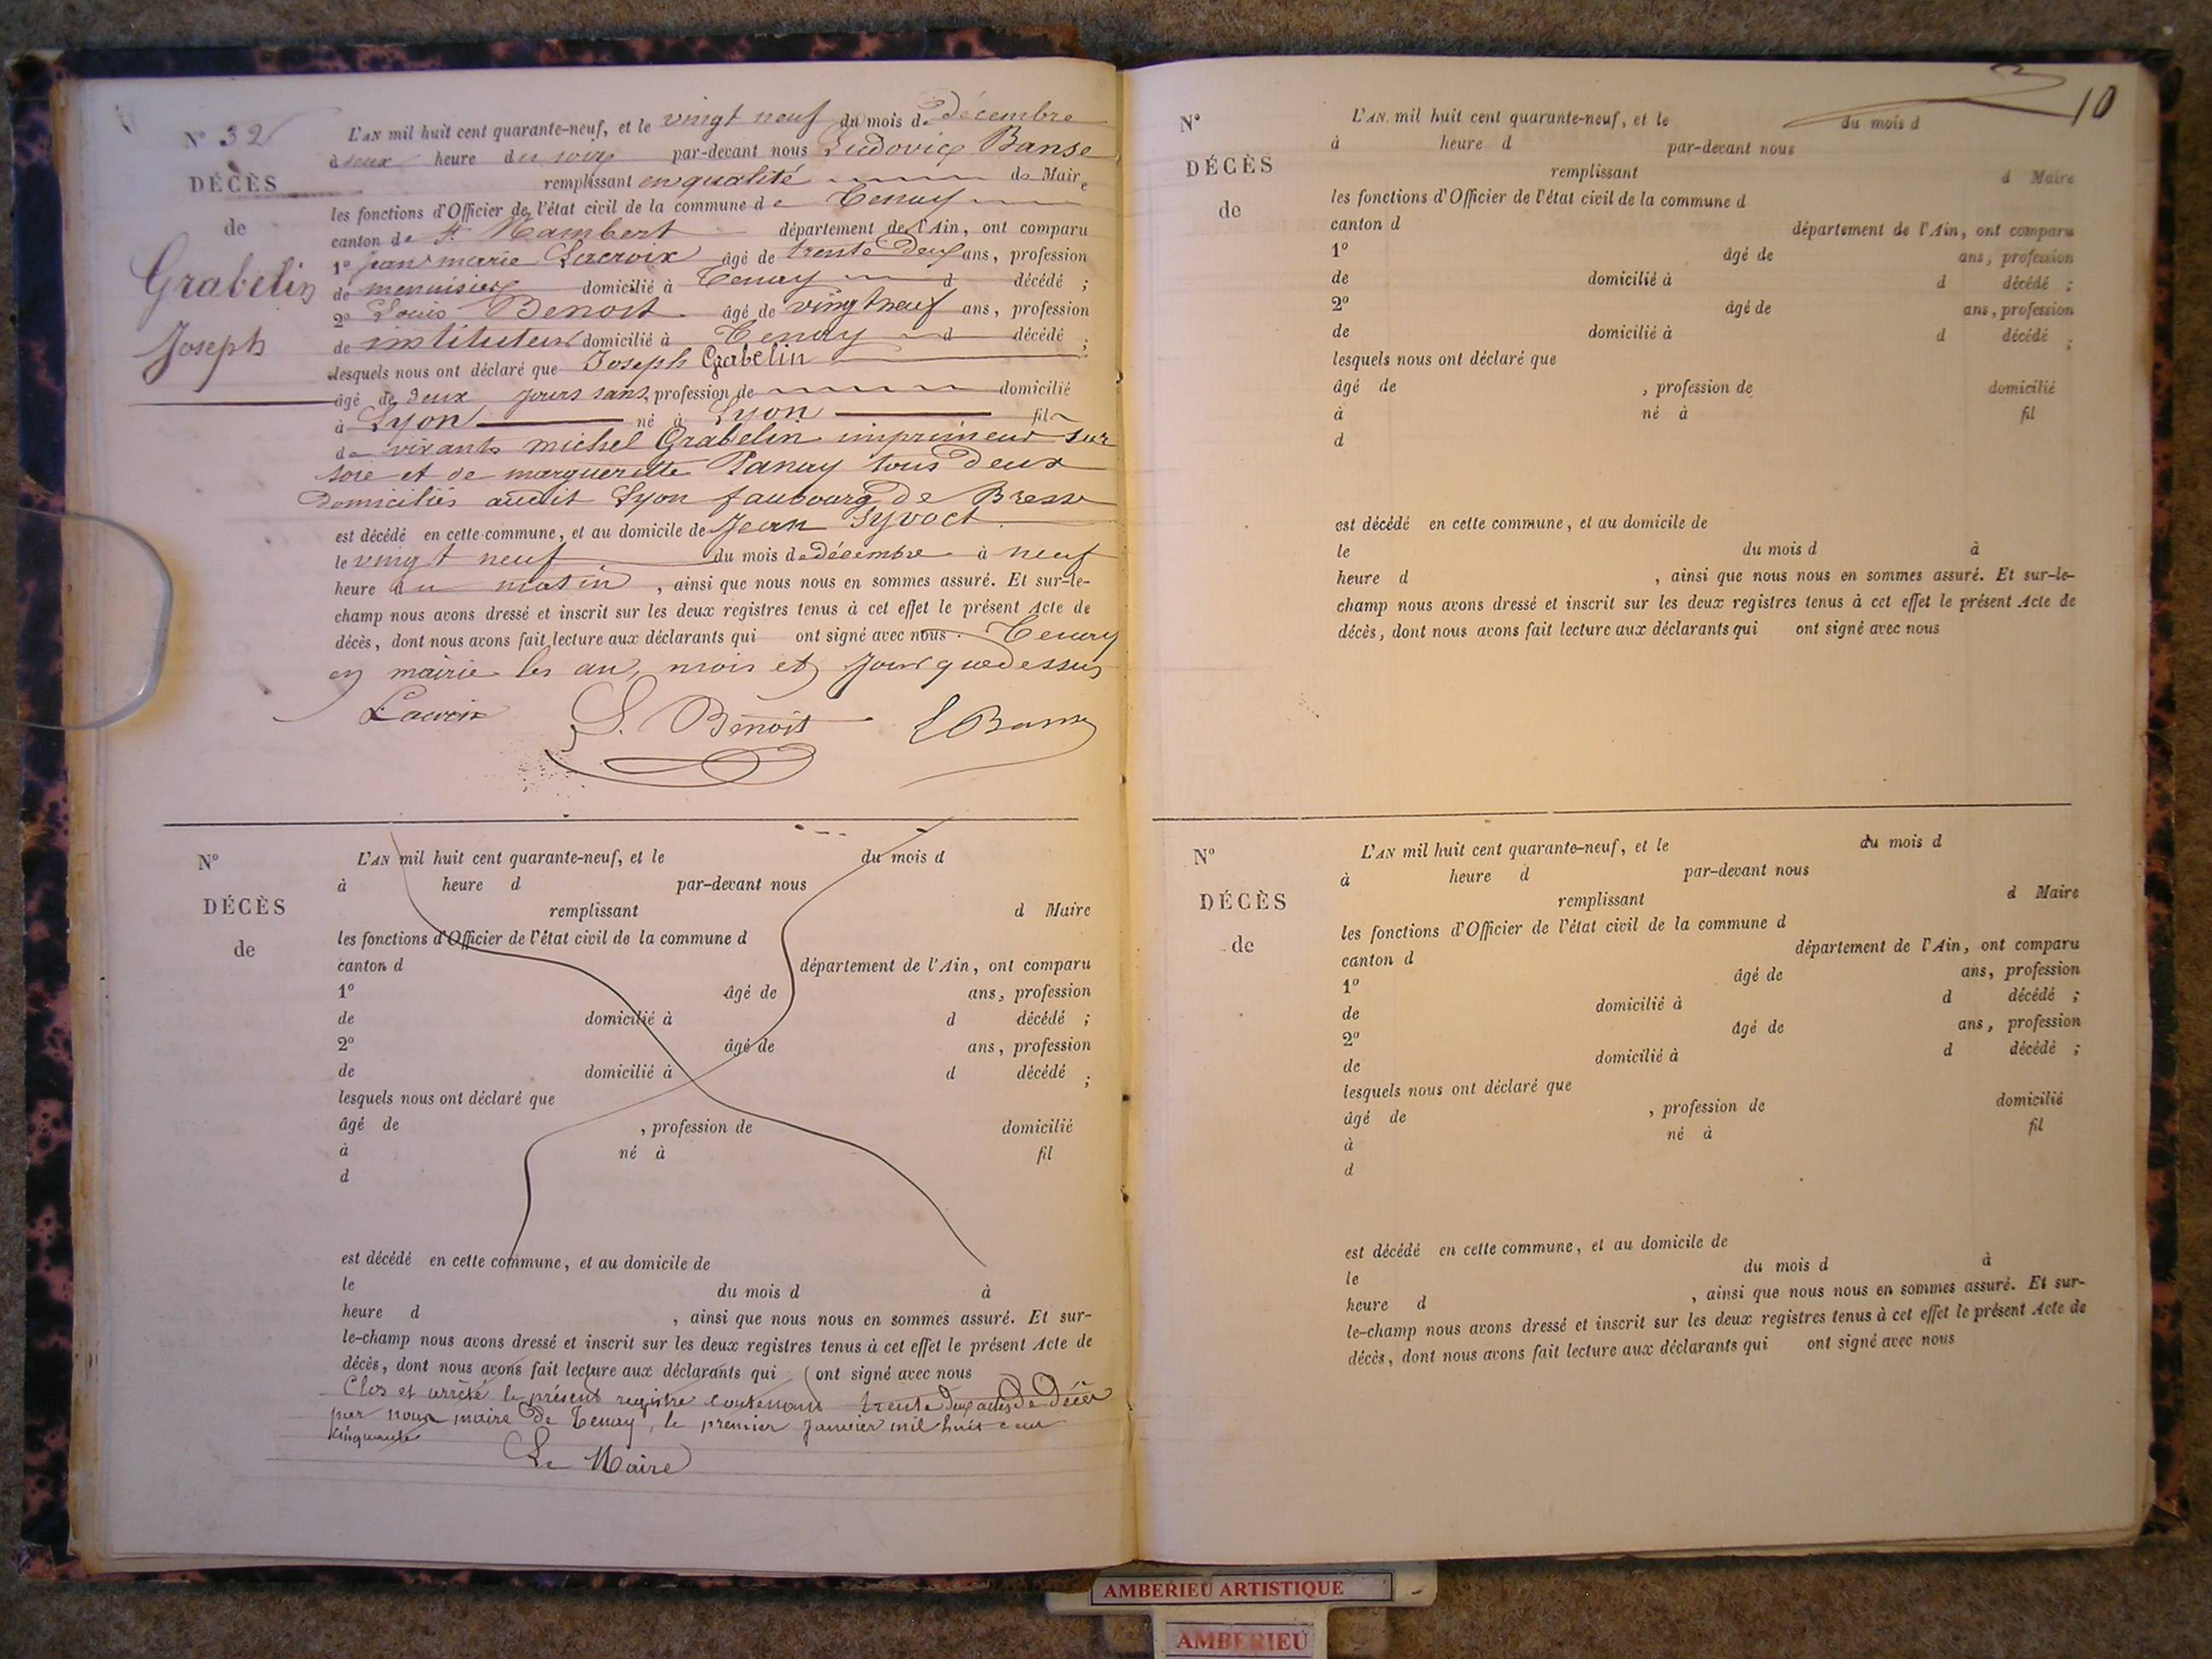 N° 32
DÉCÈS
de
Grabelin
Joseph
L'AN mil huit cent quarante-neuf, et le vingt neuf du mois de décembre
à deux heure du soir par-devant nous Ludovic Banse
remplissant en qualité de Maire
les fonctions d'Officier de l'état civil de la commune de Tenay
canton de St Rambert département de l'Ain, ont comparu
1° jean marie Lacroix âgé de trente deux ans, profession
de menuisier domicilié à Tenay d décédé ;
2° Louis Benoit âgé de vingt neuf ans, profession
de instituteur domicilié à Tenay d décédé ;
lesquels nous ont déclaré que Joseph Grabelin
âgé de deux jours sans profession de domicilié
à Lyon né à Lyon fils
de vivants michel Grabelin imprimeur sur
soie et de margueritte Panay tous deux
domiciliés audit Lyon faubourg de Bresse
est décédé en cette commune, et au domicile de Jean
le vingt neuf du mois de décembre à neuf
heure du matin , ainsi que nous nous en sommes assuré. Et sur-le-
champ nous avons dressé et inscrit sur les deux registres tenus à cet effet le présent Acte de
décès, dont nous avons fait lecture aux déclarants qui ont signé avec nous. Tenay
en mairie les an, mois et jour que dessus
Lacroix L. Benoit L Banse
N°
DÉCÈS
de
L'AN mil huit cent quarante-neuf, et le du mois d
à heure d par-devant nous
remplissant d Maire
les fonctions d'Officier de l'état civil de la commune d
canton d département de l'Ain, ont comparu
1° âgé de ans, profession
de domicilié à d décédé ;
2° âgé de ans, profession
de domicilié à d décédé ;
lesquels nous ont déclaré que
âgé de , profession de domicilié
à né à fil
d
est décédé en cette commune, et au domicile de
le du mois d à
heure d , ainsi que nous nous en sommes assuré. Et sur-
le-champ nous avons dressé et inscrit sur les deux registres tenus à cet effet le présent Acte de
décès, dont nous avons fait lecture aux déclarants qui ont signé avec nous
Clos et arrêté le présent registre contenant trente deux actes de décès
par nous maire de Tenay, le premier Janvier mil huit cent
cinquante
Le Maire
10
N°
DÉCÈS
de
L'AN mil huit cent quarante-neuf, et le du mois d
à heure d par-devant nous
remplissant d Maire
les fonctions d'Officier de l'état civil de la commune d
canton d département de l'Ain, ont comparu
1° âgé de ans, profession
de domicilié à d décédé ;
2° âgé de ans, profession
de domicilié à d décédé ;
lesquels nous ont déclaré que
âgé de , profession de domicilié
à né à fil
d
est décédé en cette commune, et au domicile de
le du mois d à
heure d , ainsi que nous nous en sommes assuré. Et sur-le-
champ nous avons dressé et inscrit sur les deux registres tenus à cet effet le présent Acte de
décès, dont nous avons fait lecture aux déclarants qui ont signé avec nous
N°
DÉCÈS
de
L'AN mil huit cent quarante-neuf, et le du mois d
à heure d par-devant nous
remplissant d Maire
les fonctions d'Officier de l'état civil de la commune d
canton d département de l'Ain, ont comparu
1° âgé de ans, profession
de domicilié à d décédé ;
2° âgé de ans, profession
de domicilié à d décédé ;
lesquels nous ont déclaré que
âgé de , profession de domicilié
à né à fil
d
est décédé en cette commune, et au domicile de
le du mois d à
heure d , ainsi que nous nous en sommes assuré. Et sur-
le-champ nous avons dressé et inscrit sur les deux registres tenus à cet effet le présent Acte de
décès, dont nous avons fait lecture aux déclarants qui ont signé avec nous
AMBERIEU ARTISTIQUE
AMBERIEU